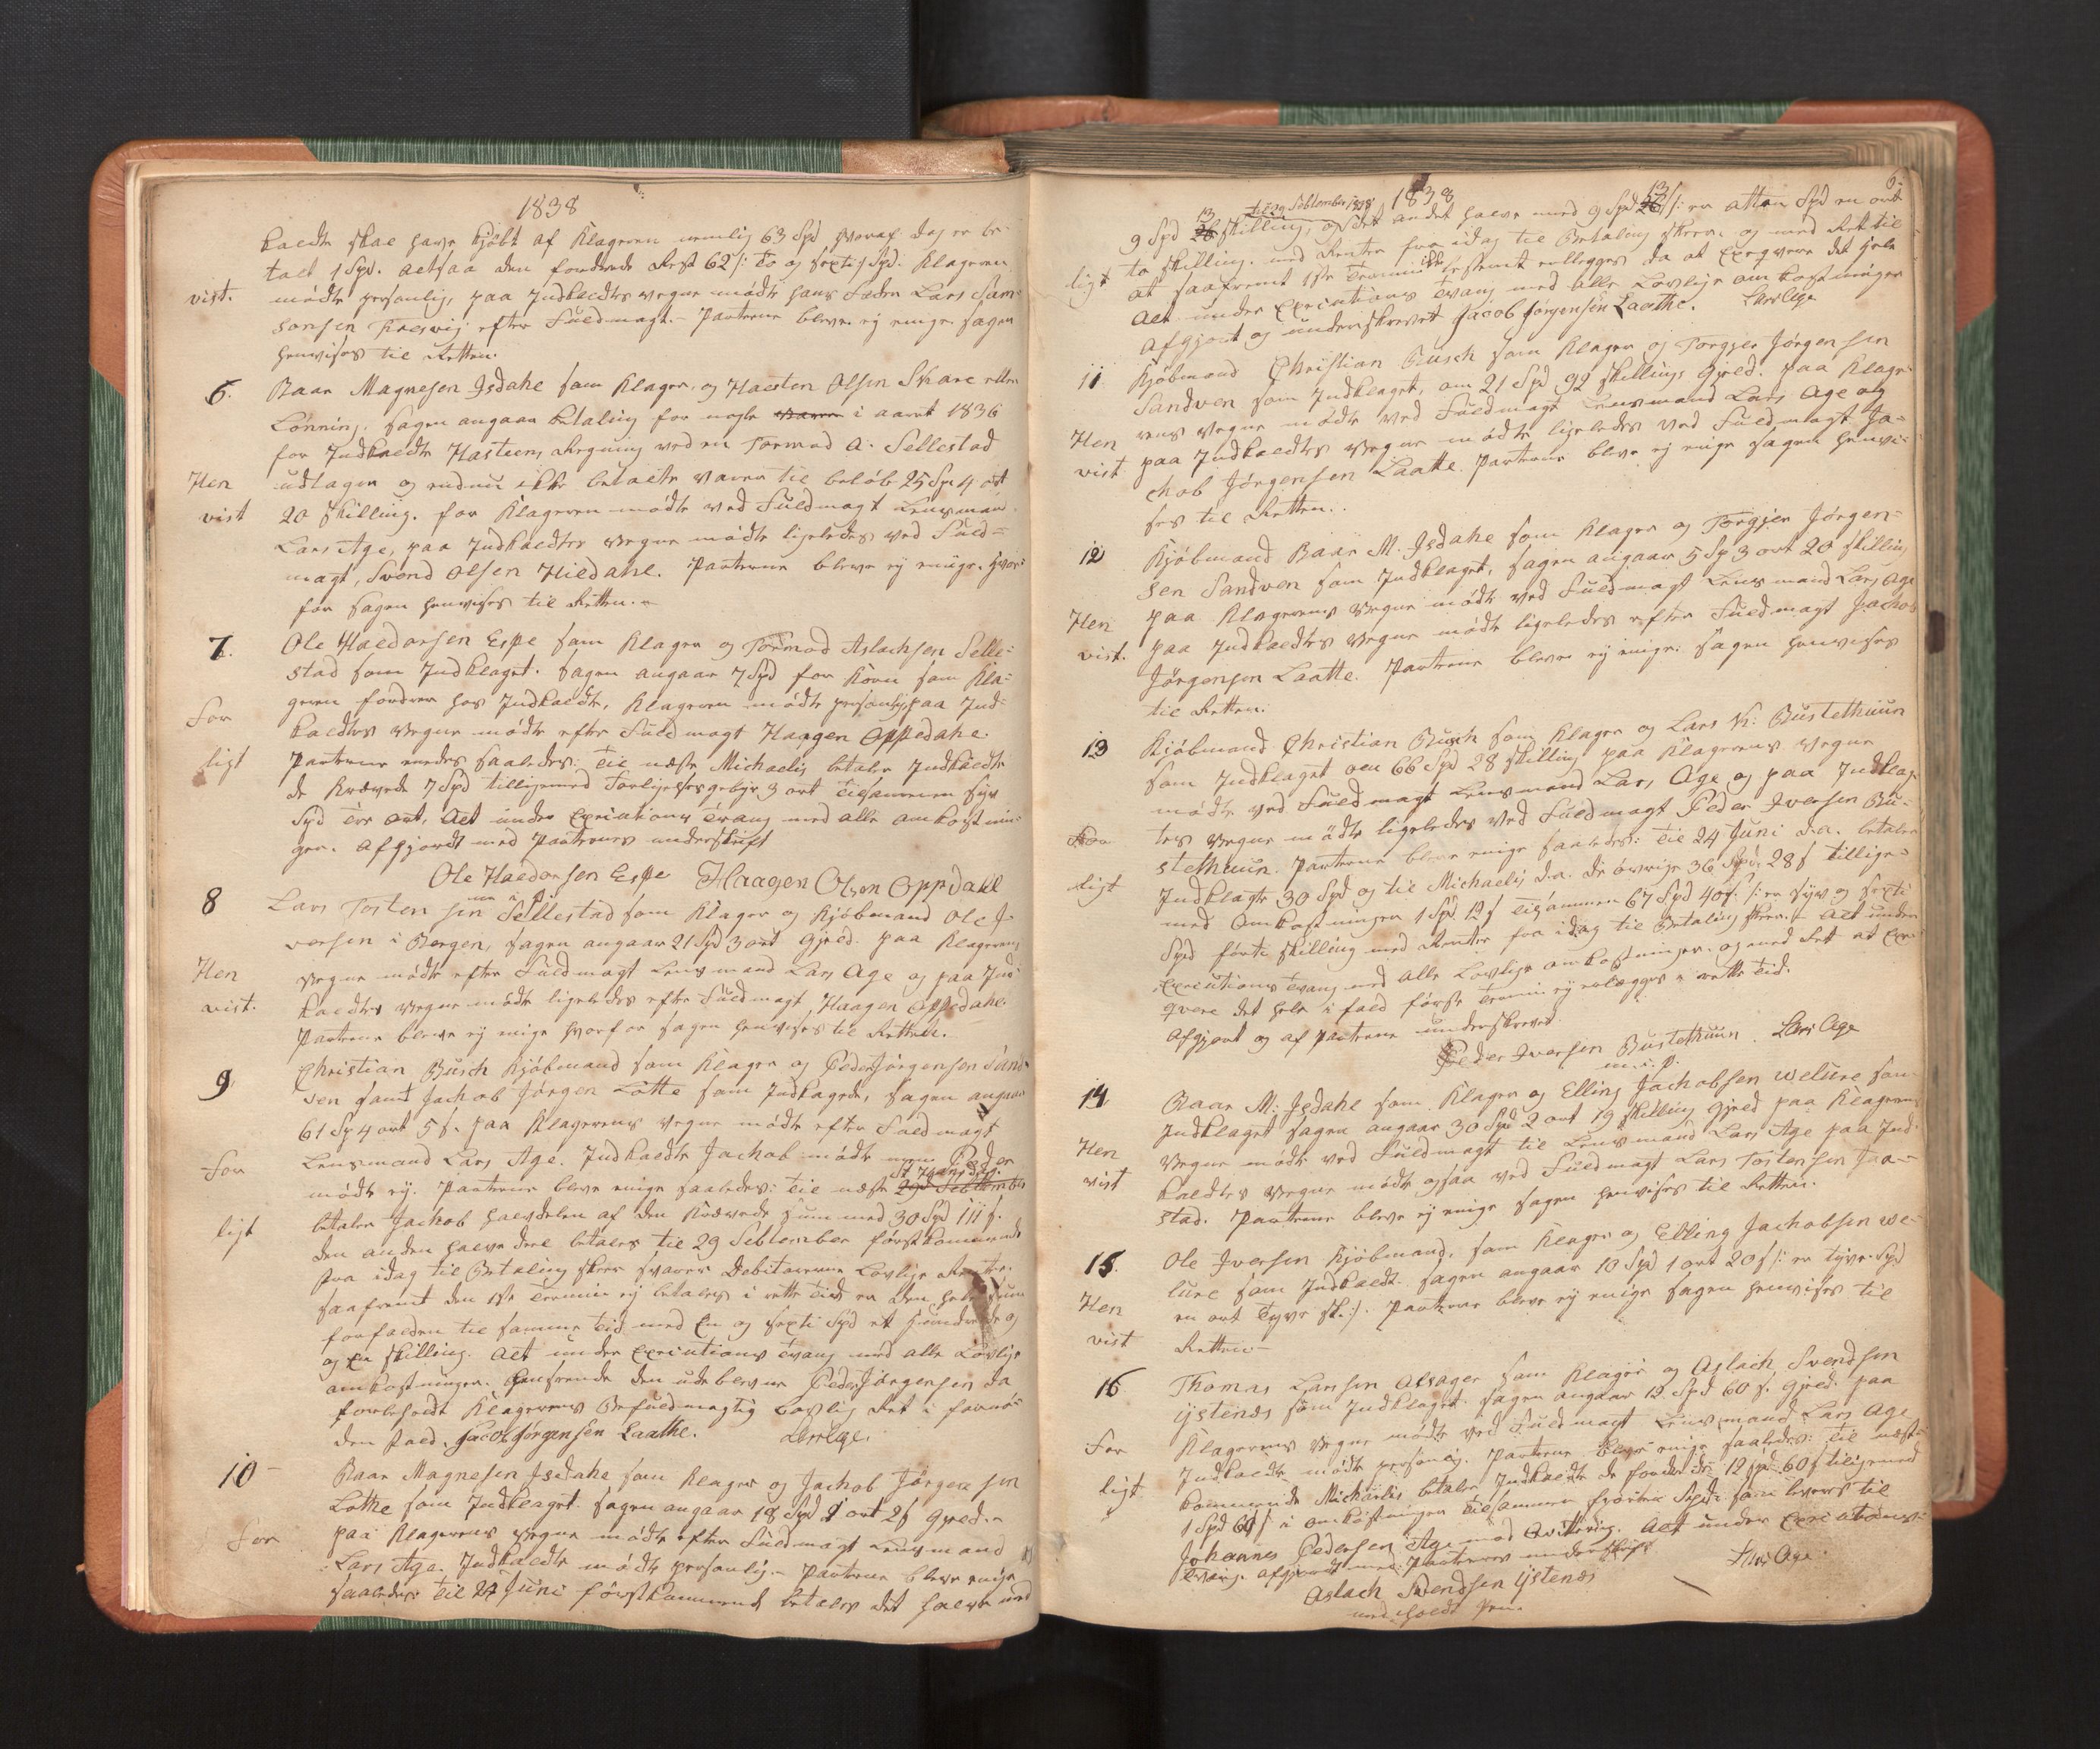 1838
kaldte skal have kjöbt af Klageren nemlig 63 Spd hvoraf dog er be-
talt 1 Spd. altsaa den fordrede Rest 62 /: To og sexti :/ Spd. Klageren
vist. mödte personlig, paa Indkaldtes vegne mödte hans Fader Lars Sam-
sonsen efter Fuldmagt. - Parterne bleve ej enige. sagen
henvises til Retten.
6. Baar Magnesen Isdahl som Klager, og Halsten Olsen Share eller
Lönning. sagen angaar betaling for nogle varer i aaret 1836
for Indkaldte Halsteens Regning ved en Tormod A. Sellestad
Hen udtagen og endnu ikke betalte varer til belöb 25 Sp 4 ort
vist 20 skilling. for Klageren mödte ved Fuldmagt Lensmand
Lars Age, paa Indkaldtes vegne mödte ligeledes ved Fuld=
magt, Svend Olsen Hildahl. Parterne bleve ej enige. hvor-
for sagen henvises til Retten. -
7. Ole Haldorsen Espe som Klager og Tormod Aslachsen Selle-
stad som Indklaget. sagen angaar 7 Spd for Korn som Kla-
geren fordrer hos Indkaldte, Klageren mödte personlig, paa Ind-
For kaldtes vegne mödte efter Fuldmagt Haagen Oppedahl.
ligt Parterne enedes saaledes: Til næste Michaelis betaler Indkaldte
de Krævede 7 Spd tilligemed Forligelsesgebyr 3 ort Tilsammen syv
Spd Tre ort, Alt under Executions Tvang med alle omkostnin-
ger. Afgjordt med Parternes underskrift
Ole Haldorsen Espe Haagen Olsen Oppdahl
8 Lars Tostensen Sellestad som Klager og Kjöbmand Ole I-
versen i Bergen, sagen angaar 21 Spd 3 ort Gjeld. paa Klagerens
Hen vegne mödte efter Fuldmagt Lensmand Lars Age og paa Ind-
vist. kaldtes vegne mödte ligeledes efter Fuldmagt Haagen Oppedahl.
Parterne bleve ej enige hvorfor sagen henvises til Retten.
9 Christian Busch Kjöbmand som Klager og Peder Jörgensen Sand-
ven samt Jachob Jörgen Lotte som Indklagede, sagen angaar
61 Sp 4 ort 5 s. paa Klagerens vegne mödte efter Fuldmagt
For Lensmand Lars Age. Indkaldte Jachob mödte Peder
mödte ej. Parterne bleve enige saaledes: til næste 29de Sebtember
ligt betaler Jachob halvdelen af den Krævede sum med 30 Spd 111 s.
den anden halve deel betales til 29 Sebtember förstkommende
fra idag til Betaling skeer svarer Debitorerne Lovlige Renter.
saafremt den 1ste Termin ej betales i rette Tid er den hele sum
forfalden til samme tid med En og sexti Spd et hundrede og
og En skilling. Alt under Executions Tvang med alle Lovlige
omkostninger. Henseende den udeblevne Peder Jörgensen da
forbeholdt Klagerens Befuldmægtig Lovlig Ret i fornö-
den fald. Jacob Jörgensen Laathe. Lars Age.
10 - Baar Magnesen Isdahl som Klager og Jachob Jörgensen
Lothe som Indklaget. sagen angaar 18 Spd 1 ort 2 s Gjeld. -
For paa Klagerens vegne mödte efter Fuldmagt Lensmand
Lars Age. Indkaldte mödte personlig. - Parterne bleve enige
saaledes: til 24 Juni förstkommende betales det halve med
6.
1838
til 29 Sebtember 1838
9 Spd 13 skilling, og det andet halve med 9 Spd 13 /: er atten Spd en ort
to skilling. med Renter fra idag til Betaling skeer. og med Ret til
ligt at saafremt 1ste Termin ikke bestemt erlægges da at Exeqvere det hele
Alt under Executions Tvang med alle Lovlige omkostninger
Afgjort og underskrevet Jacob Jörgensen Laathe. Lars Age
11 Kjöbmand Christian Busch som Klager og Torgjer Jörgensen
Sandven som Indklaget, om 21 Spd 92 skillings Gjeld. paa Klage-
Hen rens vegne mödte ved Fuldmagt Lensmand Lars Age og
vist paa Indkaldtes vegne mödte ligeledes ved Fuldmagt Ja=
chob Jörgensen Laatte. Parterne bleve ej enige sagen henvi-
ses til Retten.
12 Kjöbmand Baar M. Isdahl som Klager og Torgjer Jörgen-
sen Sandven som Indklaget, sagen angaar 5 Sp 3 ort 20 skilling
Hen paa Klagerens vegne mödte ved Fuldmagt Lensmand Lars Age
vist. paa Indkaldtes vegne mödte ligeledes efter Fuldmagt Jachob
Jörgensen Laatte. Parterne bleve ej enige. sagen henvises
til Retten.
13 Kjöbmand Christian Busch som Klager og Lars K: Bustethuun
som Indklaget om 66 Spd 28 skilling paa Klagerens vegne
mödte ved Fuldmagt Lensmand Lars Age og paa Indklag-
For tes vegne mödte ligeledes ved Fuldmagt Peder Iversen Bu-
stethuun. Parterne bleve enige saaledes: til 24 Juni d.a. betaler
ligt Indklagte 30 Spd og til Michaelis d.a. de övrige 36 Spd 28 s tillige-
med Omkostninger 1 Spd 12 s Tilsammen 67 Spd 40 s. /: er syv og sexti
Spd förti skilling med Renter fra idag til Betaling skeer. - Alt under
Executions Tvang med alle Lovlige omkostninger. og med Ret at Exe-
qvere det hele i fald förste Termin ej erlægges i rette tid.
Afgjort og af Parterne underskrevet.
Peder Iversen Bustethuun. Lars Age
m. i. P.
14 Baar M: Isdahl som Klager og Elling Jachobsen Welure som
Indklaget sagen angaar 30 Spd 2 ort 19 skilling Gjeld paa Klagerens
Hen vegne mödte ved Fuldmagt til Lensmand Lars Age paa Ind-
vist kaldtes vegne mödte ogsaa ved Fuldmagt Lars Tostensen Jaa-
stad. Parterne bleve ej enige sagen henvises til Retten.
15. Ole Iversen Kjöbmand, som Klager og Elling Jachobsen We-
lure som Indkaldt. sagen angaar 10 Spd 1 ort 20 s /: er tyve Spd
Hen en ort Tyve sk :/. Parterne bleve ej enige sagen henvises til
vist Retten -
16 Thomas Larssen Alsager som Klager og Aslach Svendsen
Ystenæs som Indklaget. sagen angaar 12 Spd 60 s. Gjeld. paa
For Klagerens vegne mödte ved Fuldmagt Lensmand Lars Age
Indkaldte mödte personlig. Parterne bleve enige saaledes: til næst-
ligt. kommende Michaelis betaler Indkaldte de fordrede 12 spd 60 s tilligemed
1 Spd 60 s i omkostninger Tilsammen fjorten Spd: som leveres til
Johannes Pedersen Age mod Qvittering. Alt under Executions-
tvang. afgjordt med Parternes underskrift Lars Age.
Aslach Svendsen Ystenæs
med holdt Pen.